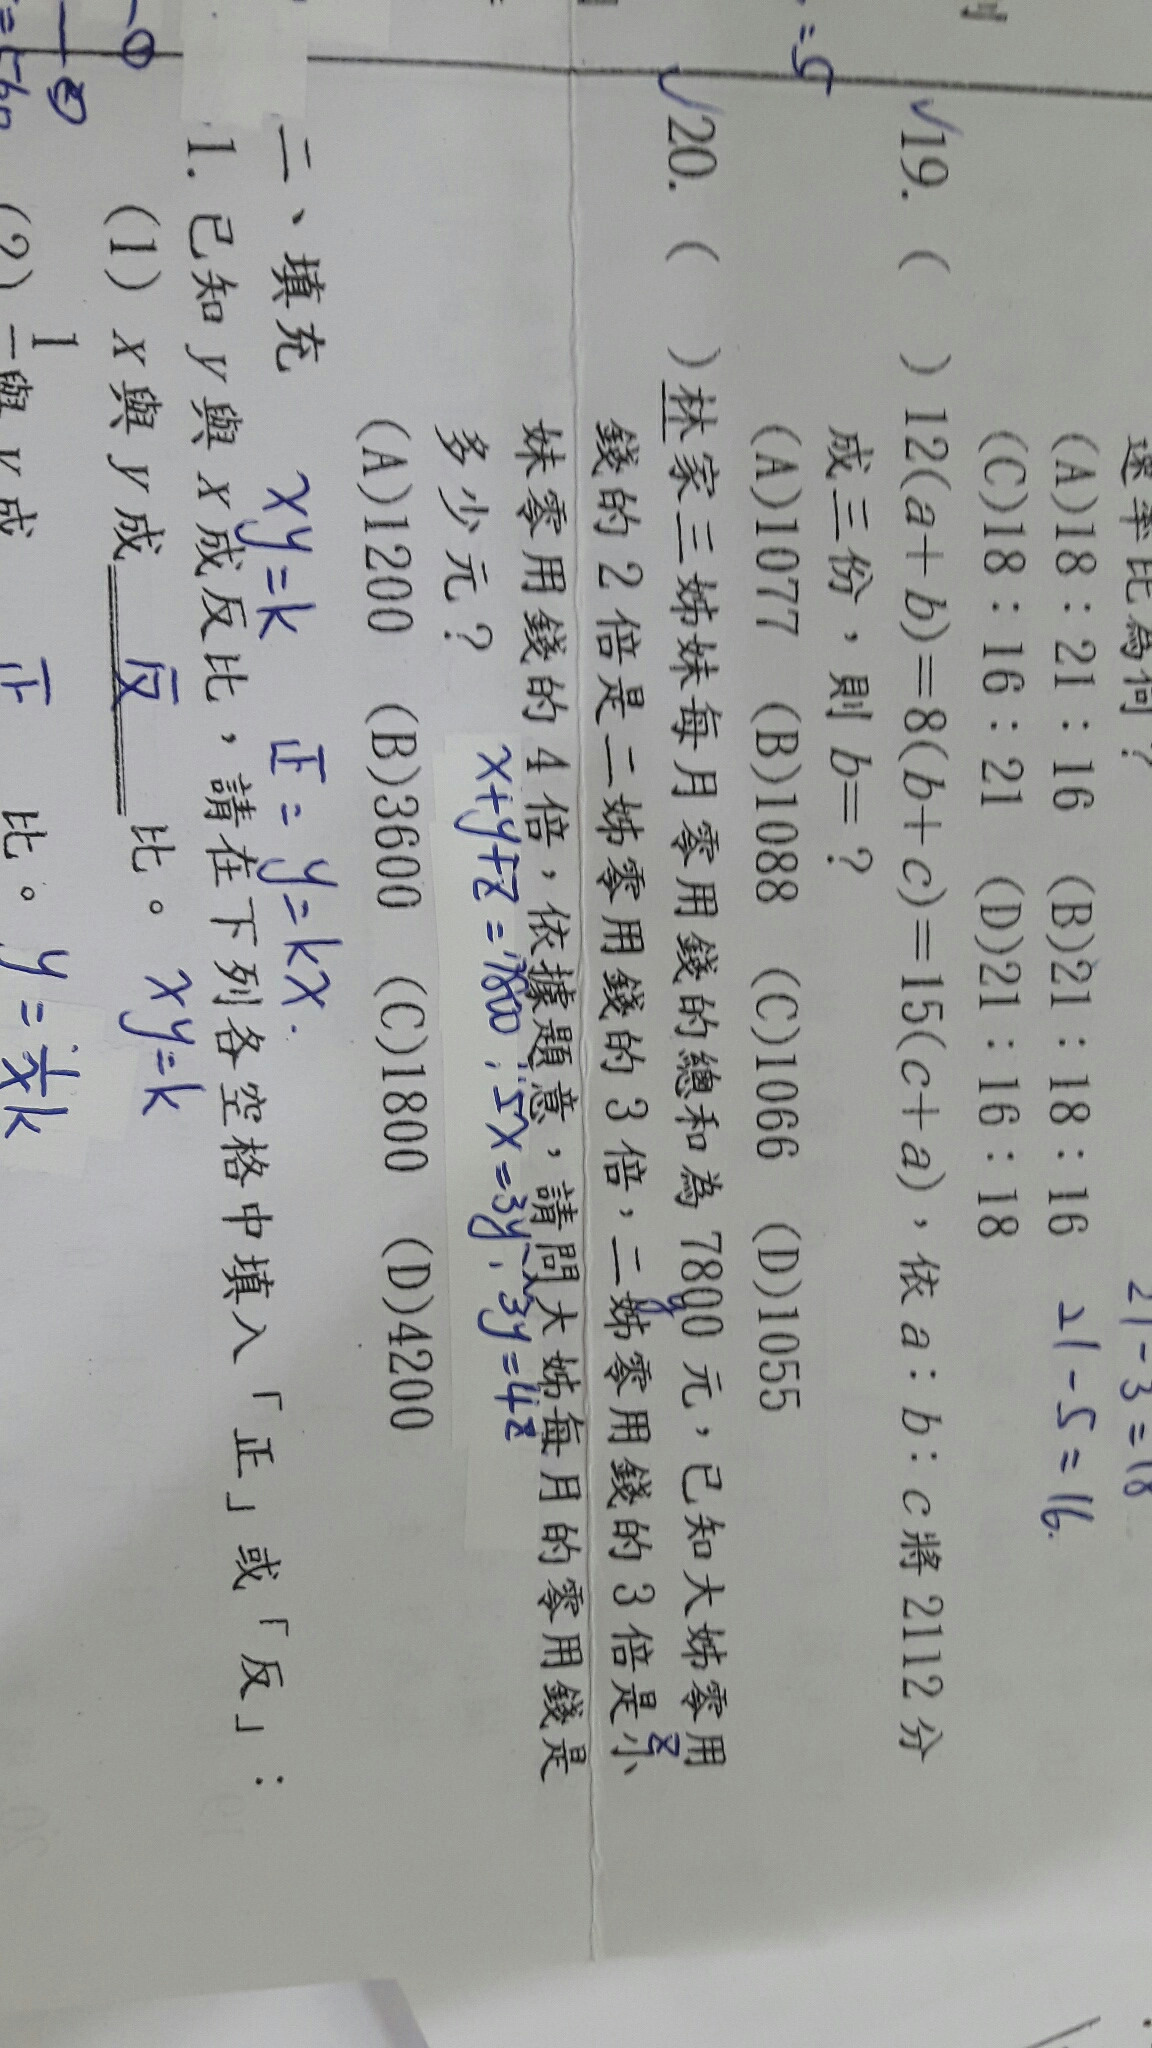 速率比為何？
21-3=18
(A)18：21：16 (B)21：18：16
21-5=16.
(C)18：16：21 (D)21：16：18
√19. ( ) 12(a+b)=8(b+c)=15(c+a)，依 a：b：c 將 2112 分
成三份，則 b=？
(A)1077 (B)1088 (C)1066 (D)1055
=5
√20. ( ) 林家三姊妹每月零用錢的總和為 7800 元，已知大姊零用
錢的 2 倍是二姊零用錢的 3 倍，二姊零用錢的 3 倍是小
y
z
妹零用錢的 4 倍，依據題意，請問大姊每月的零用錢是
多少元？
x+y+z=7800
3y=4z
(A)1200 (B)3600 (C)1800 (D)4200
二、填充
xy=k 正= y=kx.
1. 已知 y 與 x 成反比，請在下列各空格中填入「正」或「反」：
(1) x 與 y 成 反 比。 xy=k
(2) 1 與 y 成 正 比。 y=1/x k